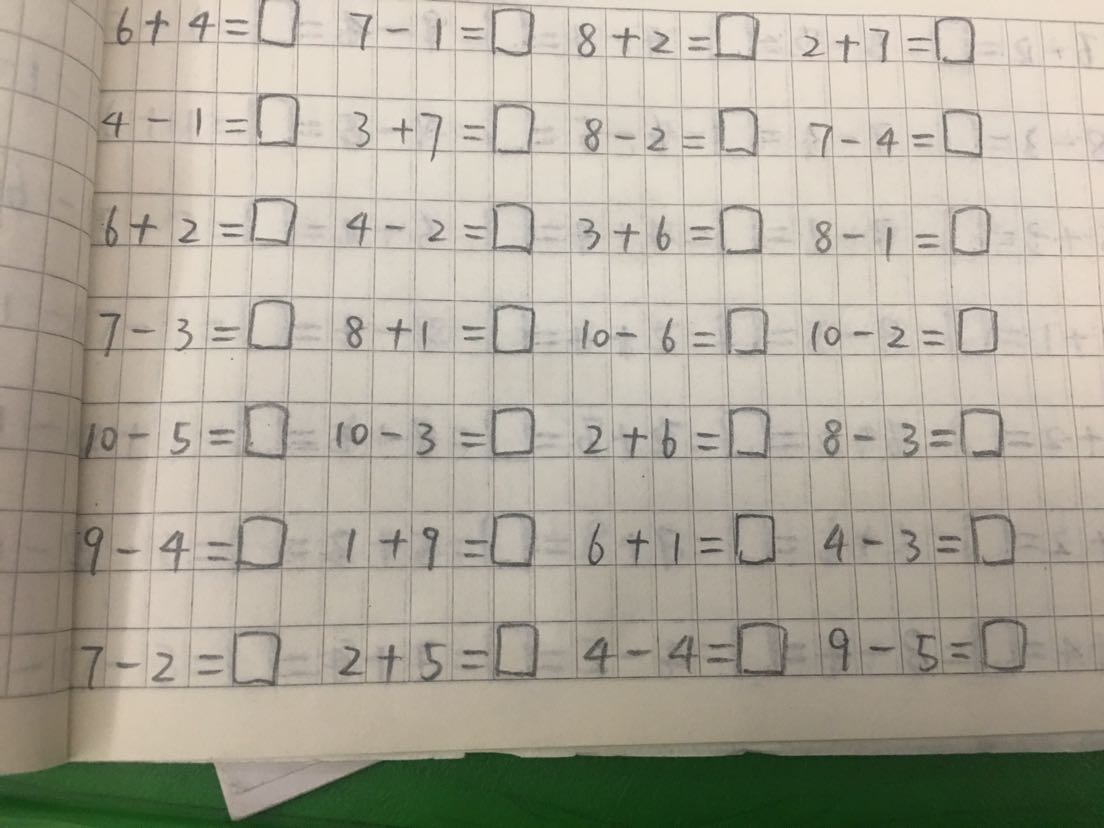 6+4=□ 7-1=□ 8+2=□ 2+7=□
4-1=□ 3+7=□ 8-2=□ 7-4=□
6+2=□ 4-2=□ 3+6=□ 8-1=□
7-3=□ 8+1=□ 10-6=□ 10-2=□
10-5=□ 10-3=□ 2+6=□ 8-3=□
9-4=□ 1+9=□ 6+1=□ 4-3=□
7-2=□ 2+5=□ 4-4=□ 9-5=□